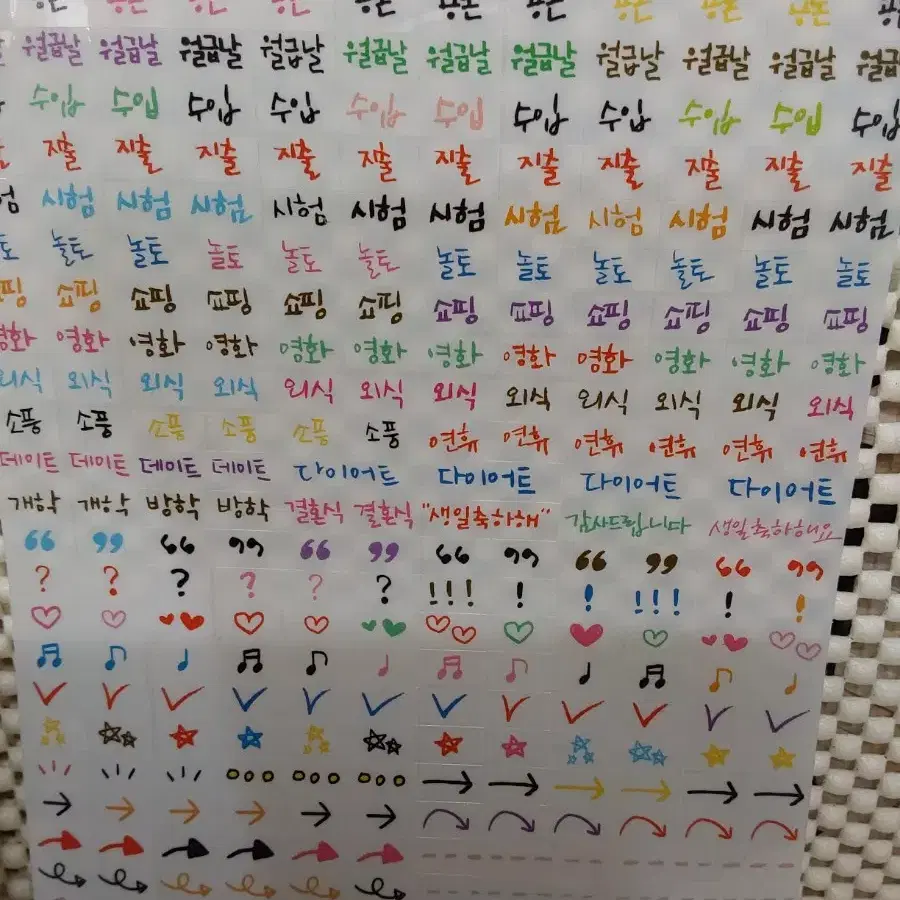 월급날 월급날 월급날 월급날 월급날 월급날 월급날 월급날 월급날 월급날 월급
수입 수입 수입 수입 수입 수입 수입 수입 수입 수입 수입
지출 지출 지출 지출 지출 지출 지출 지출 지출 지출 지출
험 시험 시험 시험 시험 시험 시험 시험 시험 시험 시험 시험
토 놀토 놀토 놀토 놀토 놀토 놀토 놀토 놀토 놀토 놀토 놀토
핑 쇼핑 쇼핑 쇼핑 쇼핑 쇼핑 쇼핑 쇼핑 쇼핑 쇼핑 쇼핑 쇼핑
영화 영화 영화 영화 영화 영화 영화 영화 영화 영화 영화 영화
외식 외식 외식 외식 외식 외식 외식 외식 외식 외식 외식 외식
소풍 소풍 소풍 소풍 소풍 소풍 연휴 연휴 연휴 연휴 연휴 연휴
데이트 데이트 데이트 데이트 다이어트 다이어트 다이어트 다이어트
개학 개학 방학 방학 결혼식 결혼식 "생일축하해" 감사드립니다 생일축하해요
“ ” “ ” “ ” “ ” “ ” “ ”
? ? ? ? ? ? !!! ! ! !!! ! !